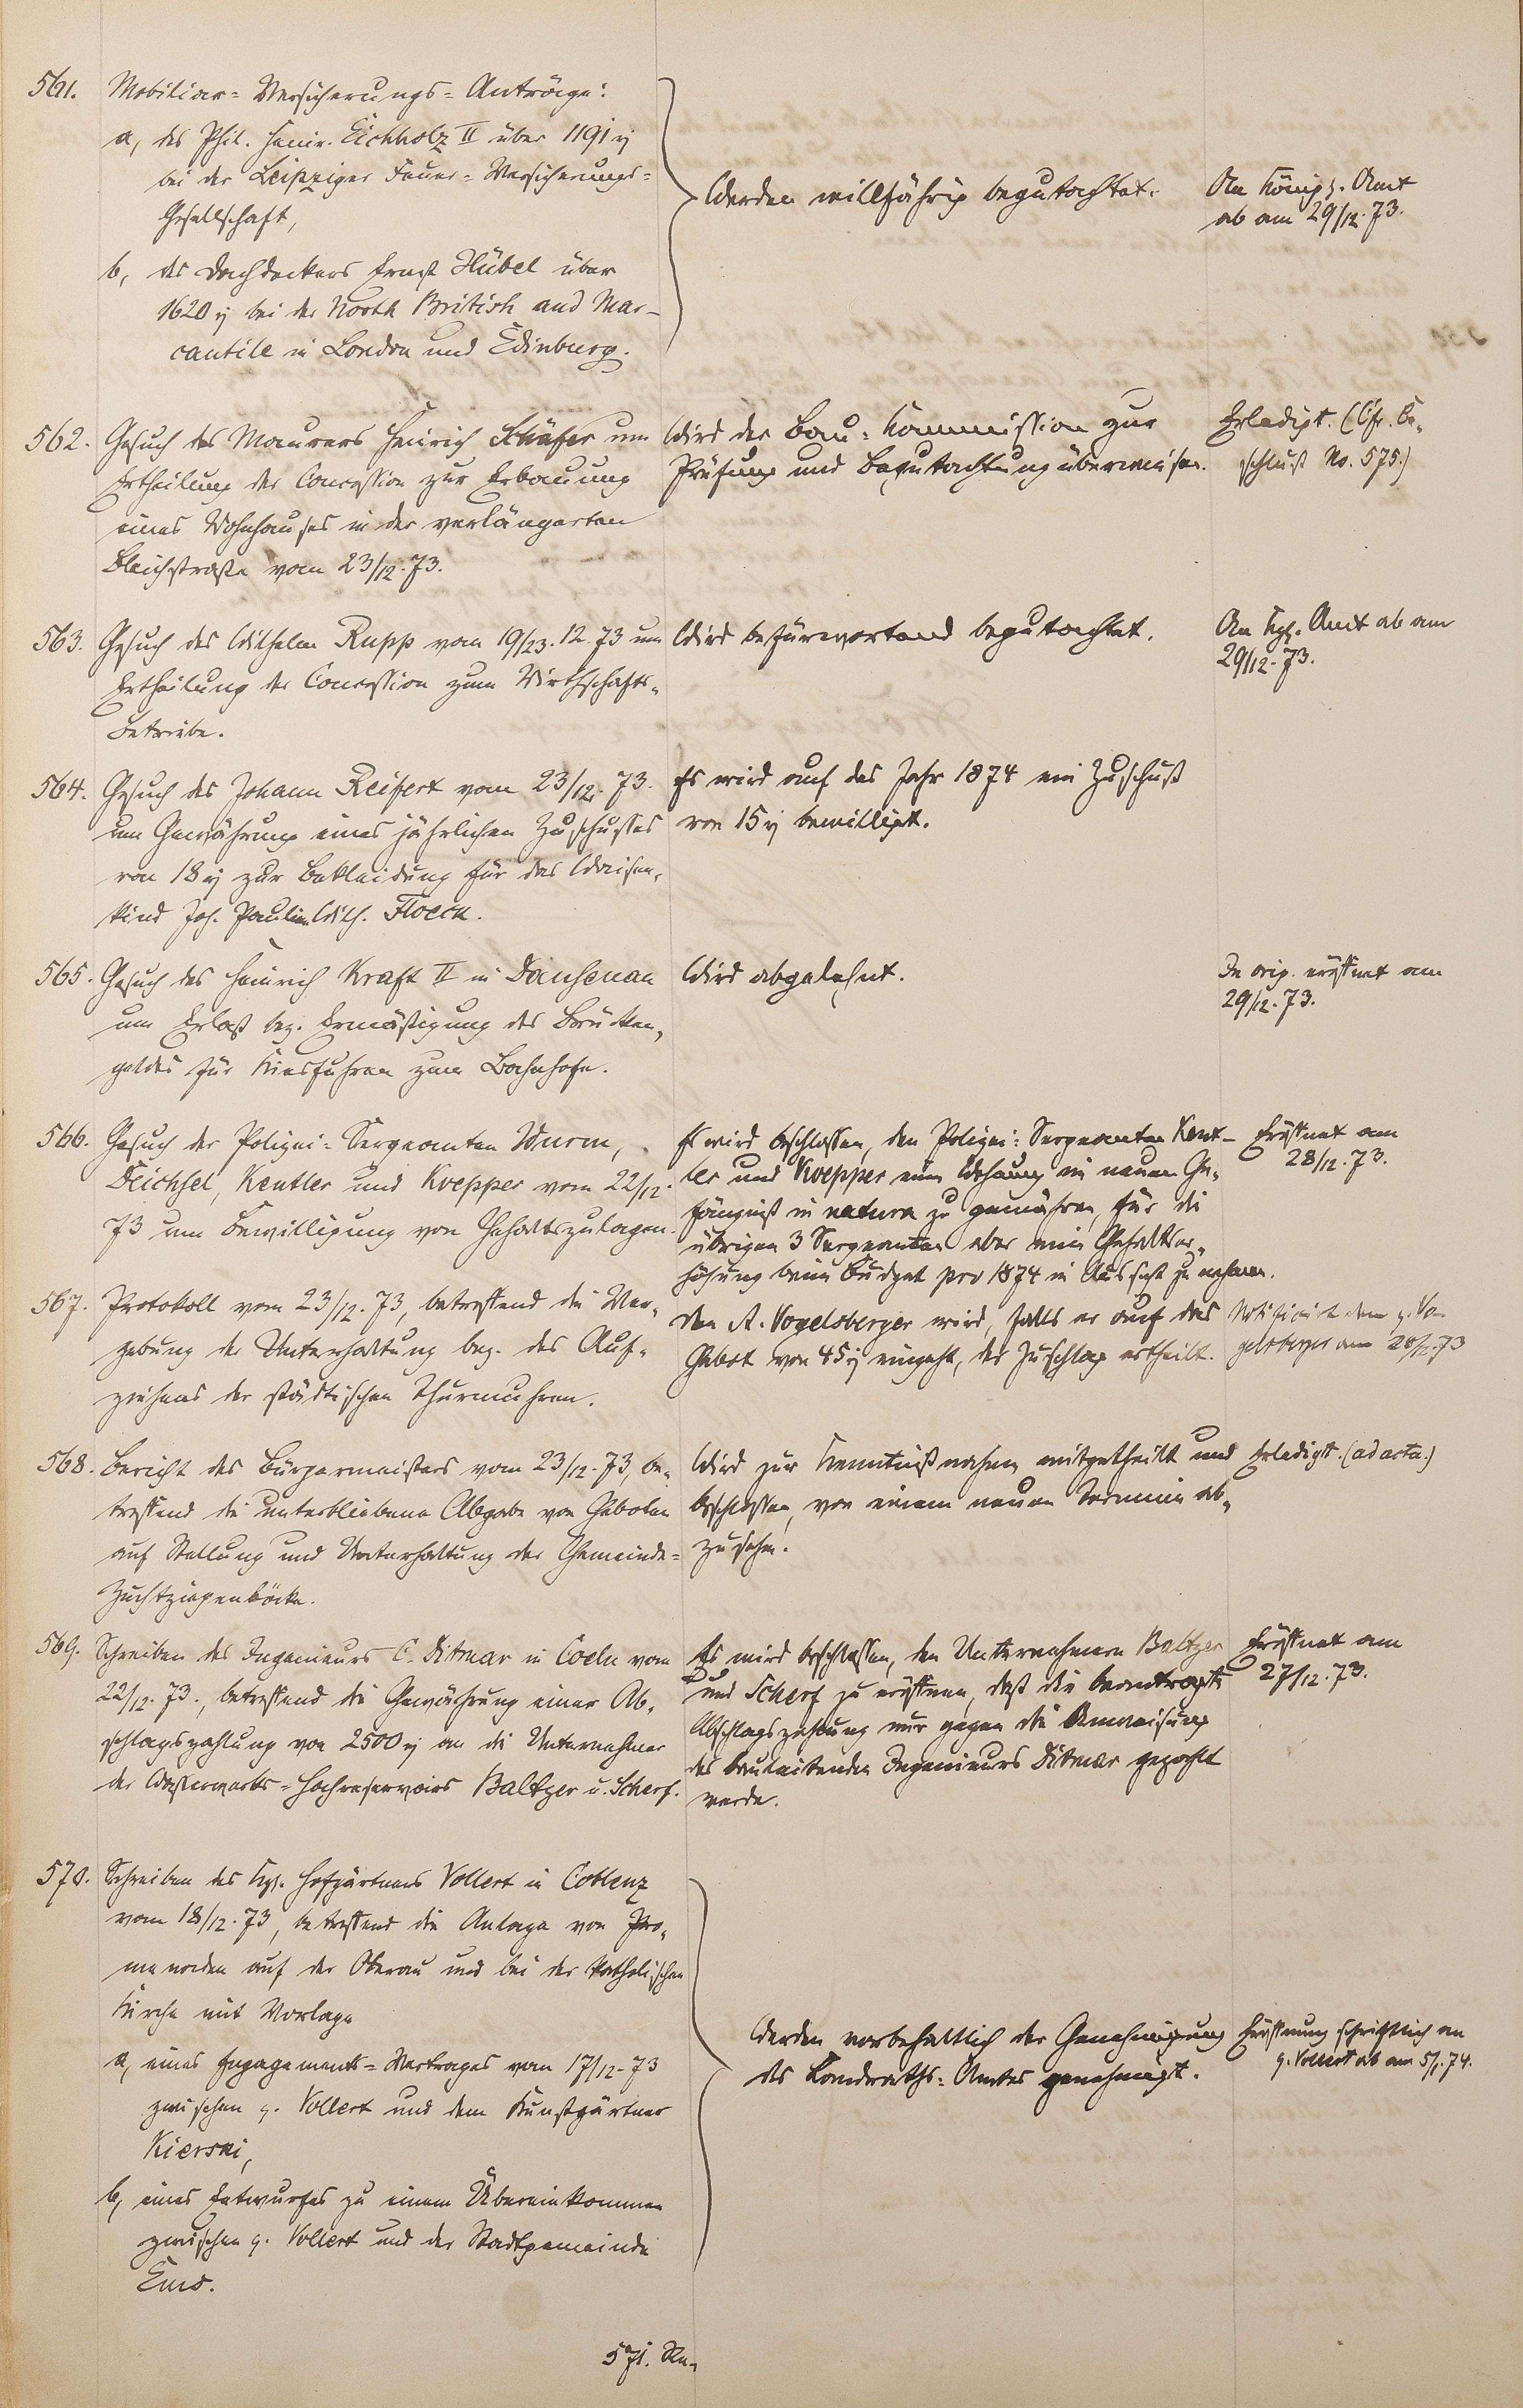 561. Mobiliar=Versicherungs=Anträge:
a, des Phil. Heinr. Eichholz II über 1191 rl
bei der Leipziger Feuer=Versicherungs=
Gesellschaft,
b, des Dachdeckers Ernst Hübel über
1620 rl bei der North British and Mer-
cantile in London und Edinburg.
Werden willfährig begutachtet.
An Königl. Amt
ab am 29/12. 73.
562. Gesuch des Maurers Heinrich Schäfer um
Ertheilung der Concession zur Erbauung
eines Wohnhauses in der verlängerten
Bleichstraße vom 23/12. 73.
Wird der Bau=Kommission zur
Prüfung und Begutachtung überwiesen.
Erledigt. (Cfr. Be-
schluß No. 575.)
563. Gesuch des Wilhelm Rupp vom 19/23. 12. 73 um
Ertheilung der Concession zum Wirthschafts-
Betriebe.
Wird befürwortend begutachtet.
An Kgl. Amt ab am
29/12. 73.
564. Gesuch des Johann Reifert vom 23/12. 73.
um Gewährung eines jährlichen Zuschusses
von 18 rl zur Bekleidung für das Waisen-
kind Joh. Paulin Wilh. Floeck.
Es wird auf das Jahr 1874 ein Zuschuß
von 15 rl bewilligt.
565. Gesuch des Heinrich Kraft II in Dausenau
um Erlaß bez. Ermäßigung des Brücken-
geldes für Kiesfuhren zum Bahnhofe.
Wird abgelehnt.
In orig. eröffnet am
29/12. 73.
566. Gesuch der Polizei=Sergeanten Wurm,
Deichsel, Kentler und Koepper vom 22/12.
73 um Bewilligung von Gehaltszulagen.
Es wird beschlossen, den Polizei=Sergeanten Kent-
ler und Koepper eine Wohnung im neuen Ge-
fängniß in natura zu gewähren, für die
übrigen 3 Sergeanten aber eine Gehaltser-
höhung beim Budget pro 1874 in Aussicht zu nehmen.
Eröffnet am
28/12. 73.
567. Protokoll vom 23/12. 73, betreffend die Ver-
gebung der Unterhaltung bez. des Auf-
ziehens der städtischen Thurmuhren.
Dem A. Vogelsberger wird, falls er auf das
Gebot von 45 rl eingeht, der Zuschlag ertheilt.
Notificirt dem g. Vo-
gelsberger am 28/12. 73
568. Bericht des Bürgermeisters vom 23/12. 73, be-
treffend die unterbliebene Abgabe von Geboten
auf Stellung und Unterhaltung der Gemeinde=
Zuchtziegenböcke.
Wird zur Kenntnißnahme mitgetheilt und
beschlossen, von einem neuen Termin ab-
zusehen.
Erledigt. (ad acta.)
569. Schreiben des Ingenieurs C. Ditmar in Coeln vom
22/12. 73., betreffend die Gewährung einer Ab-
schlagszahlung von 2500 rl an die Unternehmer
des Wasserwerks=Hochreservoirs Baltzer u. Scherf.
Es wird beschlossen, den Unternehmern Baltzer
und Scherf zu eröffnen, daß die beantragte
Abschlagszahlung nur gegen die Anweisung
des bauleitenden Ingenieurs Ditmar gezahlt
werde.
Eröffnet am
27/12. 73.
570. Schreiben des Kgl. Hofgärtners Vollert in Coblenz
vom 18/12. 73, betreffend die Anlage von Pro-
menaden auf der Oberau und bei der katholischen
Kirche mit Vorlage
a, eines Engagements=Vertrages vom 17/12. 73
zwischen g. Vollert und dem Kunstgärtner
Kierski,
b, eines Entwurfes zu einem Übereinkommen
zwischen g. Vollert und der Stadtgemeinde
Ems.
Werden vorbehaltlich der Genehmigung
des Landraths=Amtes genehmigt.
Eröffnung schriftlich an
g. Vollert ab am 5/1. 74.
571. An-